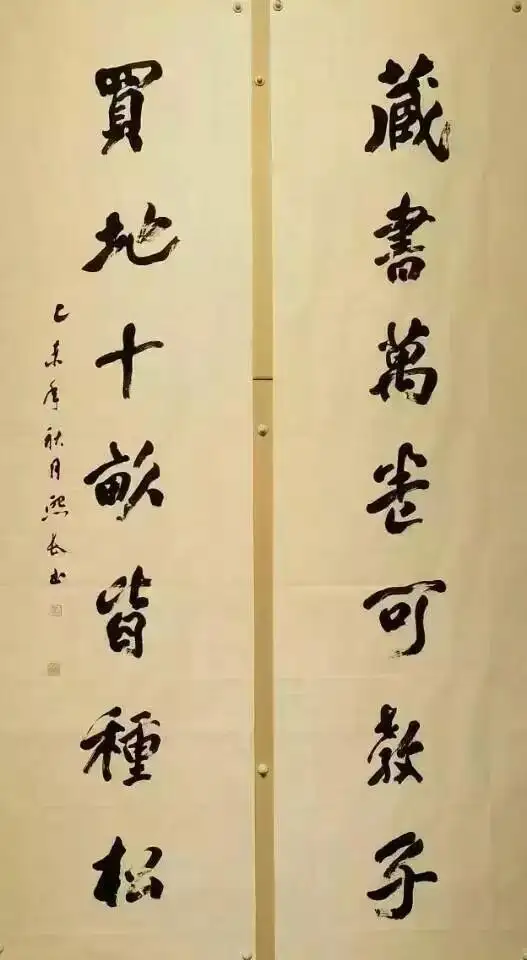 藏書萬卷可教子
買地十畝皆種松
己未年秋月熙長书